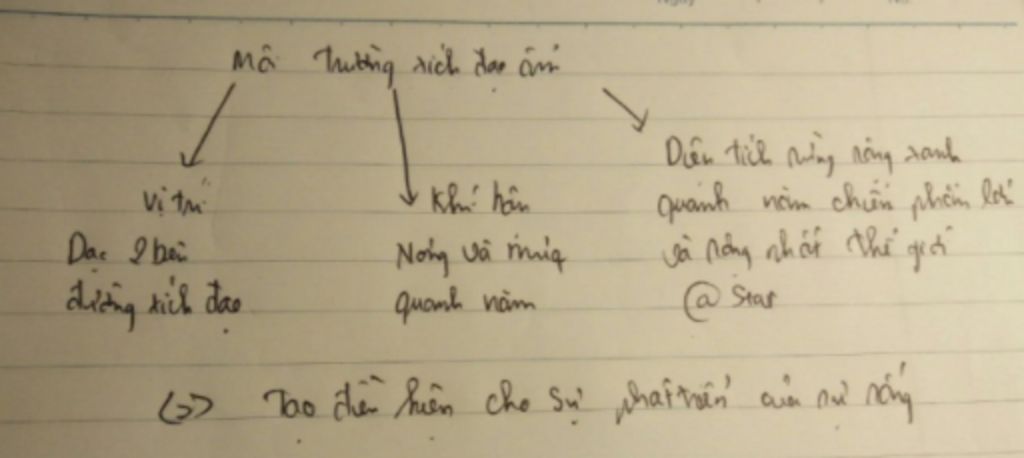 Mô trường xích đạo ẩm
Vị trí
Dọc 2 bên
đường xích đạo
Khí hậu
Nóng và mưa
quanh năm
Diện tích rừng rông xanh
quanh năm chiếm phần lớn
và rông nhất thế giới
@ Star
<=> Tạo điều kiện cho sự phát triển của sự sống